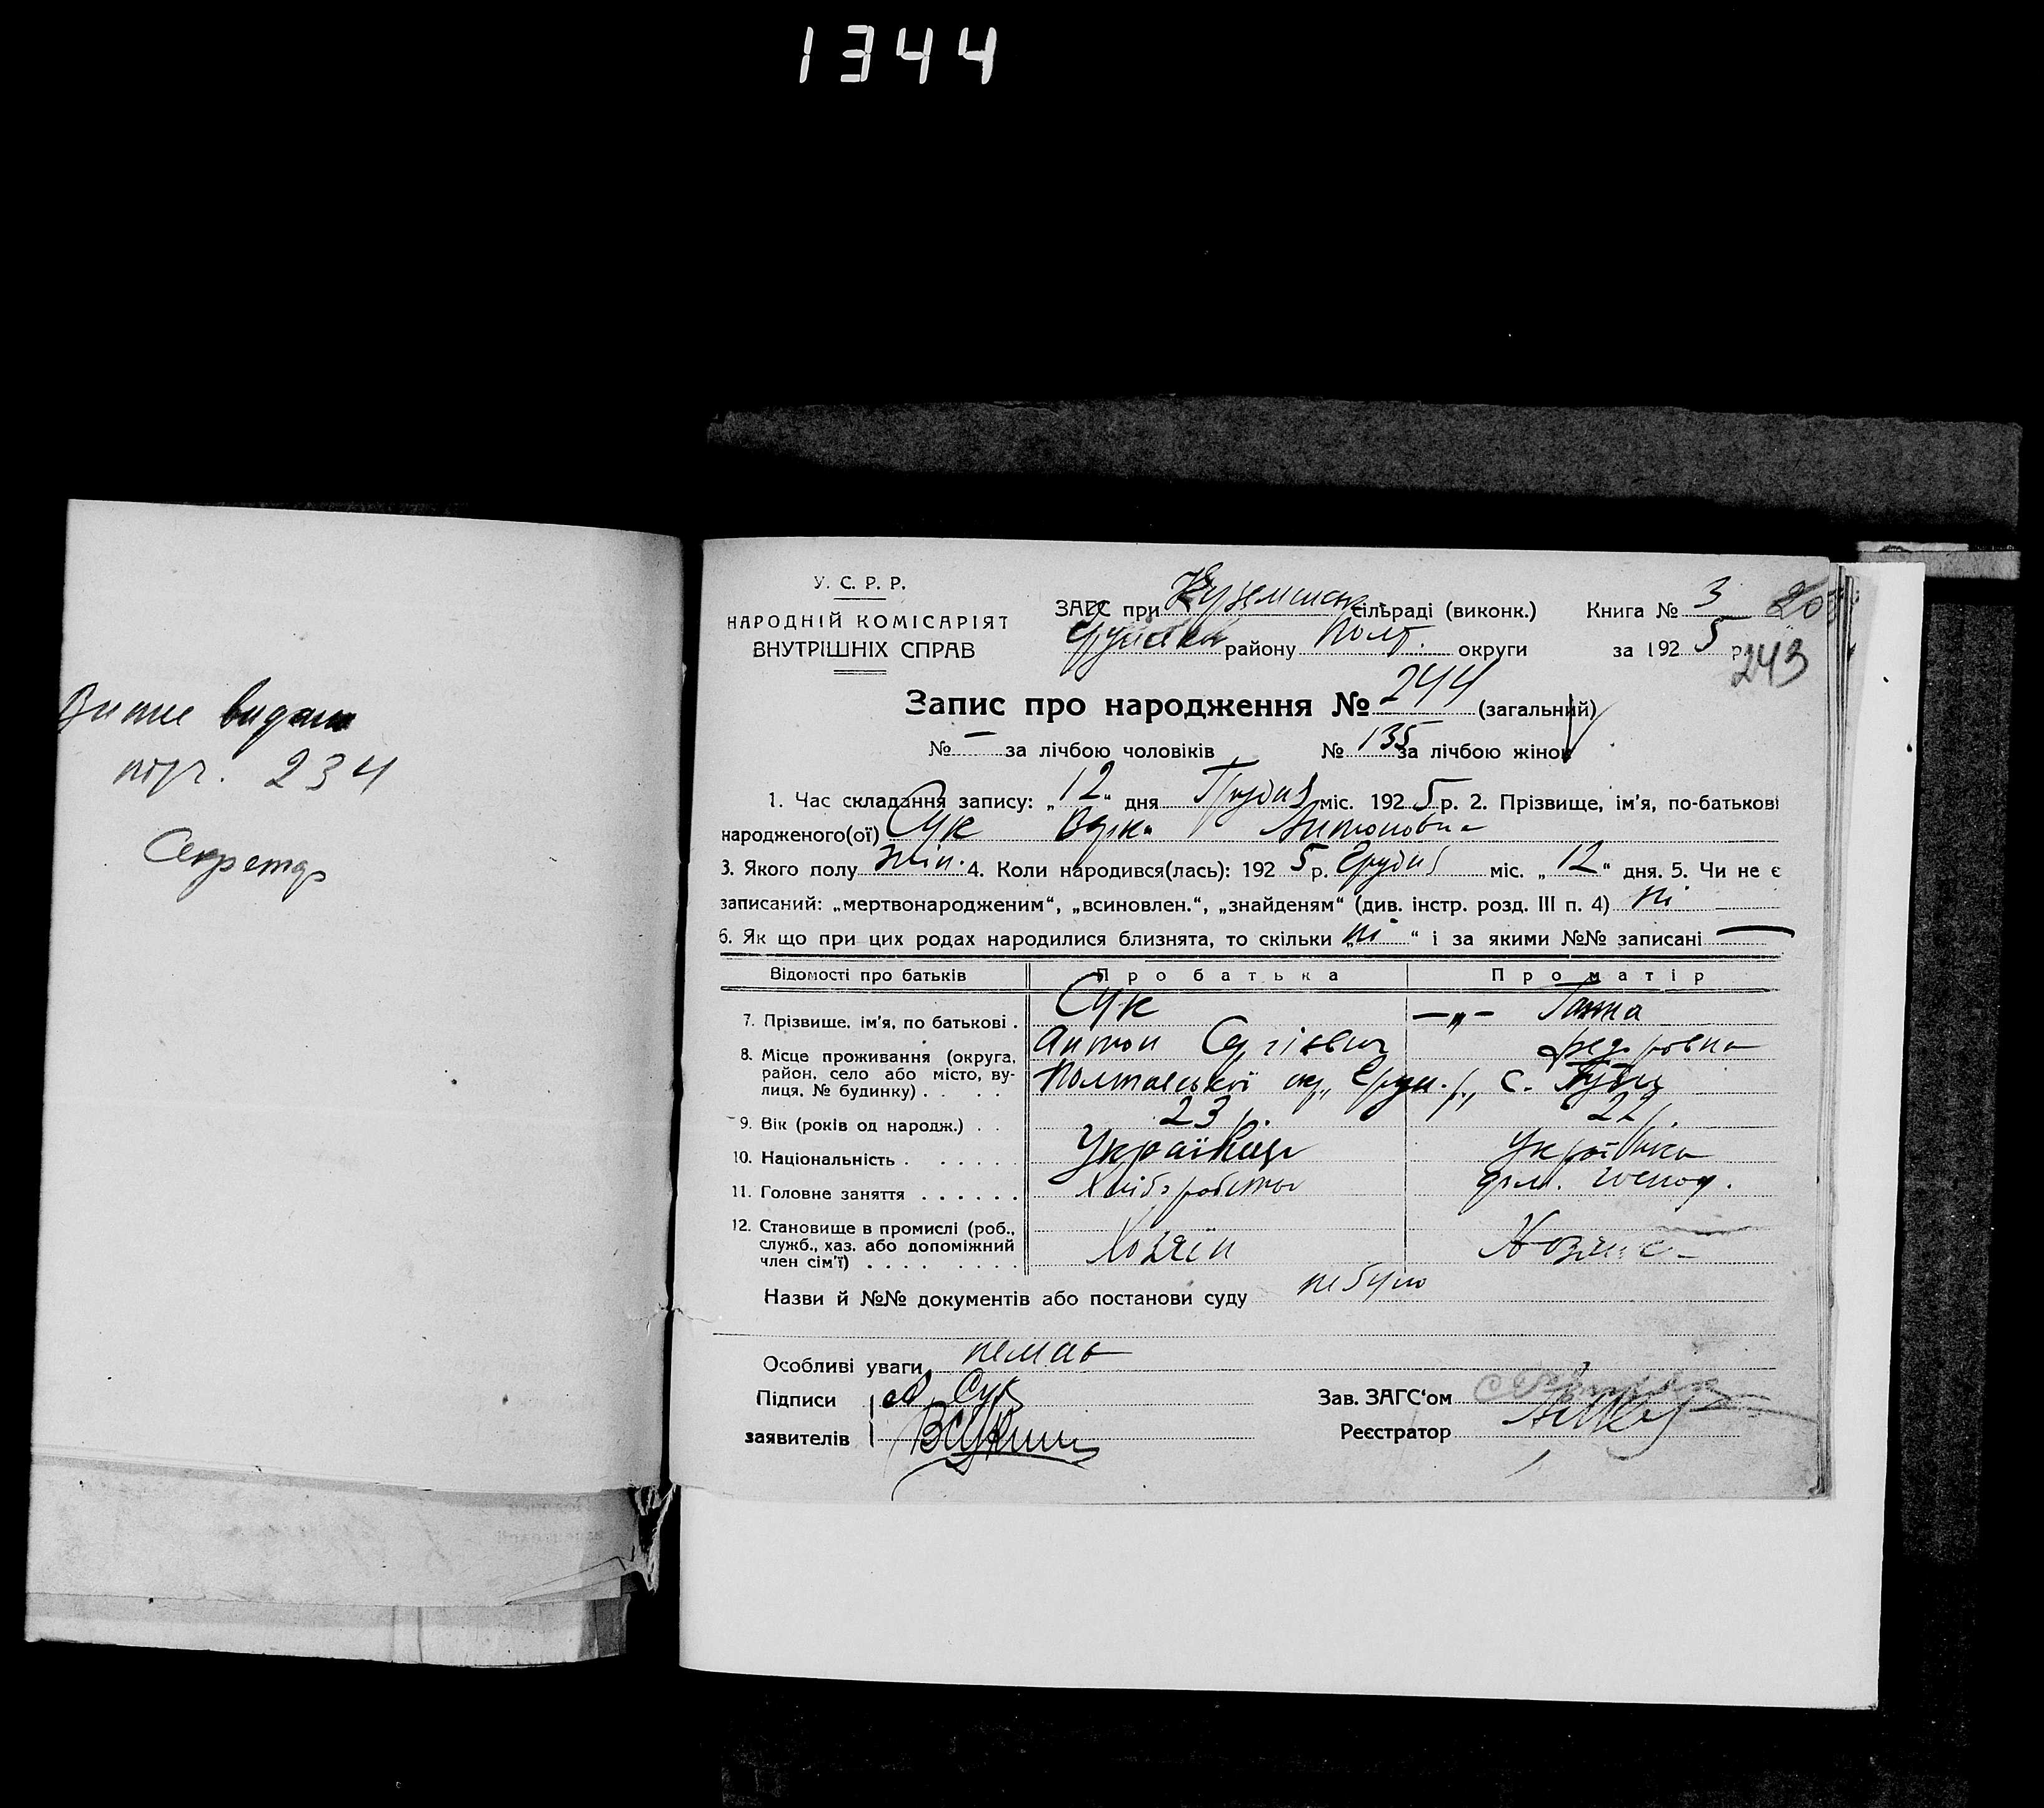 1344
видано
234
Секретар
У. С. Р. Р.
НАРОДНІЙ КОМІСАРІЯТ
ВНУТРІШНІХ СПРАВ
ЗАГС при сільраді (виконк.)
району Полт. округи
Книга № 3
за 1925 р.
243
Запис про народження № 244 (загальний)
№ — за лічбою чоловіків № 135 за лічбою жінок
1. Час складання запису: „12“ дня Грудня міс. 1925 р. 2. Прізвище, ім'я, по-батькові
народженого(ої) Сук Варка Антоновна
3. Якого полу жін. 4. Коли народився(лась): 1925 р. Грудня міс. „12“ дня. 5. Чи не є
записаний: „мертвонародженим“, „всиновлен.“, „знайденям“ (див. інстр. розд. III п. 4) ні
6. Як що при цих родах народилися близнята, то скільки „ні“ і за якими №№ записані —
Відомості про батьків Про батька Про матір
7. Прізвище, ім'я, по батькові . Сук —„— Ганна
Антон Сергієвич Федоровна
8. Місце проживання (округа,
район, село або місто, ву-
лиця, № будинку) . . . . Полтавської окр., Грун. р., с.
9. Вік (років од народж.) . . 23 р. 22 р.
10. Національність . . . . . . Українець Українка
11. Головне заняття . . . . . . Хліборобство дом. господ.
12. Становище в промислі (роб.,
служб., хаз. або допоміжний
член сім'ї) . . . . . . . . Хозяїн Хозяйка
Назви й №№ документів або постанови суду не було
Особливі уваги немає
Підписи Сук
заявителів
Зав. ЗАГС'ом
Реєстратор